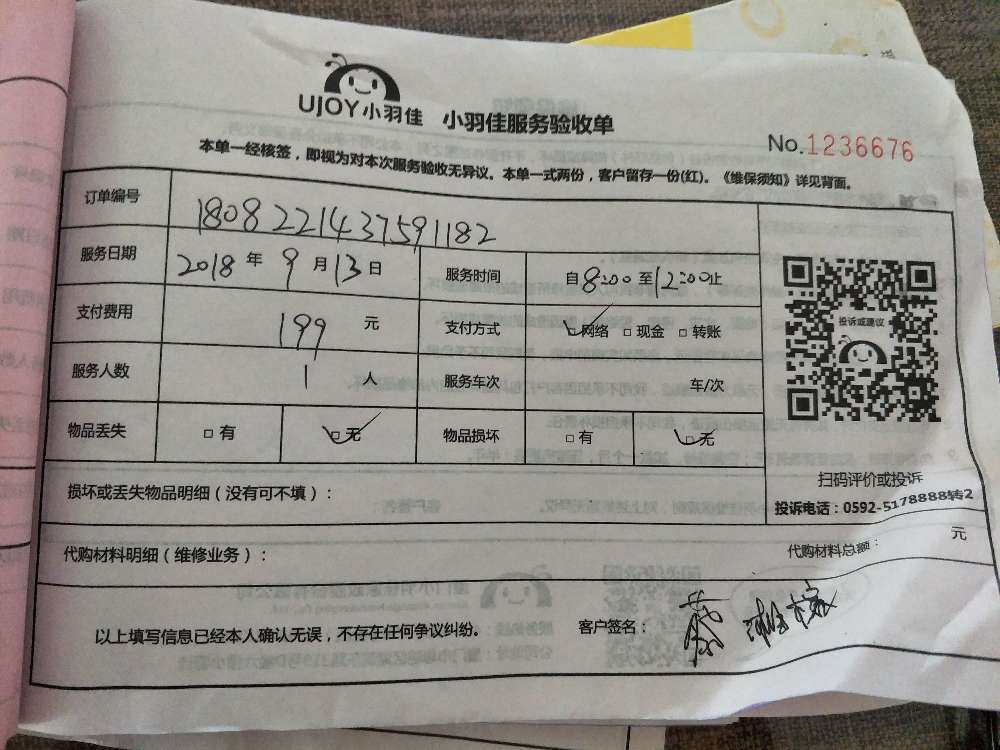 UJOY小羽佳 小羽佳服务验收单
No.1236676
本单一经核签，即视为对本次服务验收无异议。本单一式两份，客户留存一份(红)。《维保须知》详见背面。
订单编号 1808221437591182
服务日期 2018年9月13日 服务时间 自8:00至12:00止
支付费用 199元 支付方式 ☑网络 □现金 □转账
服务人数 1人 服务车次 车/次
物品丢失 □有 ☑无 物品损坏 □有 ☑无
投诉或建议
扫码评价或投诉
投诉电话：0592-5178888转2
损坏或丢失物品明细（没有可不填）：
代购材料明细（维修业务）： 代购材料总额： 元
以上填写信息已经本人确认无误，不存在任何争议纠纷。 客户签名：